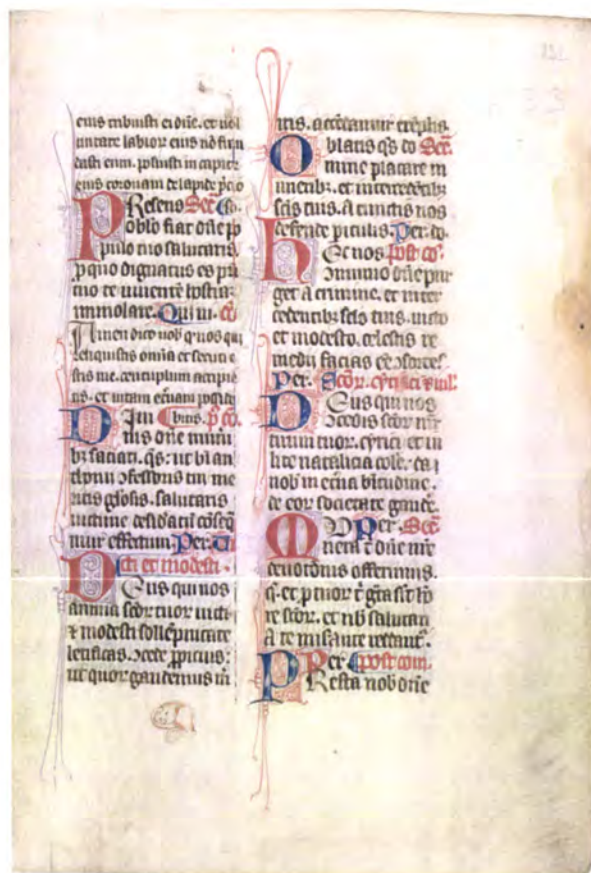 eius tribuisti ei dñe. et uol
untate labior eius nō frau
dasti eum. posuisti in capite
eius coronam de lapide p̄cio
Resens Sec̄. so.
oblō fiat dñe po
pulo tuo salutaris.
p quo dignatus es pat
rio te uiuentē hostiaʒ
immolare. Qui ui. cō
Amen dico uob̄ q nos qui
reliquistis omīa et secuti e
stis me. centuplum accipie
tis. et uitam et̄nam possid
Diui bitis. p̄ cō.
nis dñe mune
bʒ saciati. qs. ut b̄i an
ɔfessoris tui me
ritis gl̄osis. salutaris
uictime desid̄atū cōseq
mur effectum Per.
Viti et modesti.
Deus qui nos
annua scōr tuor uicti
et modesti sollēpnitate
letificas. ɔcede p̄picius:
ut quor gaudemus m̄
itis. accēdamur exēplis.
Oblatis qs do Sec̄.
mine placare m
uneribʒ. et intercedentibʒ
scīs tuis. a cunctis nos
defende piculis. Per. do.
Hec nos post cō.
ɔmunio dñe pur
get a crimine. et inter
cedentibʒ scīs tuis. uicto
et modesto. celestis re
medii facias ee ɔsortes.
Per. Scōr. cyrici et iul.
Deus qui nos
ɔcedis scōr mr̄
tirum tuor. cyrici et iu
lite natalicia colē. da
nob̄ in et̄na b̄titudine.
de eor societate gaudē.
Per. Sec̄
Munera t̄ dñe nr̄e
deuotōnis offerimus.
q̄. et. p tuor t̄ gr̄a sīt ho
re scōr. et nb̄ salutari
a te misāute reddant.
Per post com.
Presta nob̄ dñe